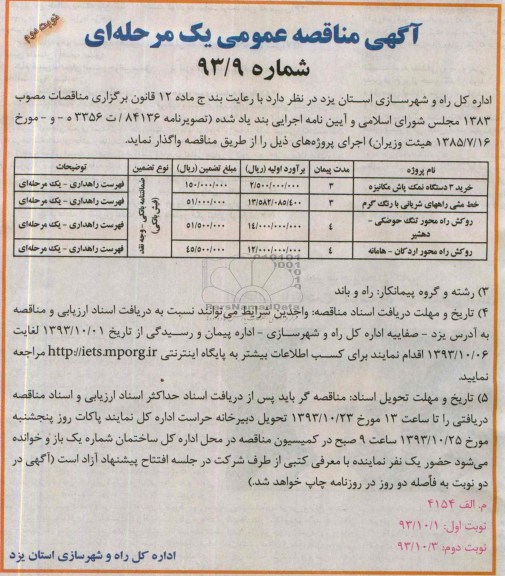 نوبت دوم
آگهی مناقصه عمومی یک مرحله‌ای
شماره ۹۳/۹
اداره کل راه و شهرسازی استان یزد در نظر دارد با رعایت بند ج ماده ۱۲ قانون برگزاری مناقصات مصوب
۱۳۸۳ مجلس شورای اسلامی و آیین نامه اجرایی بند یاد شده (تصویرنامه ۸۴۱۳۶ / ت ۳۳۵۶ ه - و - مورخ
۱۳۸۵/۷/۱۶ هیئت وزیران) اجرای پروژه‌های ذیل را از طریق مناقصه واگذار نماید.
نام پروژه مدت پیمان برآورد اولیه (ریال) مبلغ تضمین (ریال) نوع تضمین توضیحات
خرید ۳ دستگاه نمک پاش مکانیزه ۳ ۲/۵۰۰/۰۰۰/۰۰۰ ۱۵۰/۰۰۰/۰۰۰ فهرست راهداری - یک مرحله‌ای
خط مشی راههای شریانی با رنگ گرم ۳ ۱۳/۵۸۲/۰۸۵/۴۰۰ ۵۱/۰۰۰/۰۰۰ فهرست راهداری - یک مرحله‌ای
روکش راه محور تنگ حوضکی - دهشیر ۴ ۱۴/۰۰۰/۰۰۰/۰۰۰ ۵۱/۵۰۰/۰۰۰ فهرست راهداری - یک مرحله‌ای
روکش راه محور اردکان - هامانه ۴ ۱۲/۰۰۰/۰۰۰/۰۰۰ ۴۵/۵۰۰/۰۰۰ فهرست راهداری - یک مرحله‌ای
ضمانتنامه بانکی - وجه نقد
(فیش بانکی)
۳) رشته و گروه پیمانکار: راه و باند
۴) تاریخ و مهلت دریافت اسناد مناقصه: واجدین شرایط می‌توانند نسبت به دریافت اسناد ارزیابی و مناقصه
به آدرس یزد - صفاییه اداره کل راه و شهرسازی - اداره پیمان و رسیدگی از تاریخ ۱۳۹۳/۱۰/۰۱ لغایت
۱۳۹۳/۱۰/۰۶ اقدام نمایند برای کسب اطلاعات بیشتر به پایگاه اینترنتی http://iets.mporg.ir مراجعه
نمایید.
۵) تاریخ و مهلت تحویل اسناد: مناقصه گر باید پس از دریافت اسناد حداکثر اسناد ارزیابی و اسناد مناقصه
دریافتی را تا ساعت ۱۳ مورخ ۱۳۹۳/۱۰/۲۳ تحویل دبیرخانه حراست اداره کل نمایند پاکات روز پنجشنبه
مورخ ۱۳۹۳/۱۰/۲۵ ساعت ۹ صبح در کمیسیون مناقصه در محل اداره کل ساختمان شماره یک باز و خوانده
می‌شود حضور یک نفر نماینده با معرفی کتبی از طرف شرکت در جلسه افتتاح پیشنهاد آزاد است (آگهی در
دو نوبت به فاصله دو روز در روزنامه چاپ خواهد شد.)
م. الف ۴۱۵۴
نوبت اول: ۹۳/۱۰/۱
نوبت دوم: ۹۳/۱۰/۳
اداره کل راه و شهرسازی استان یزد